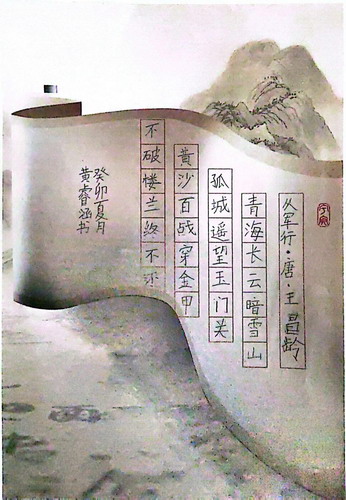 从军行·唐·王昌龄
青海长云暗雪山
孤城遥望玉门关
黄沙百战穿金甲
不破楼兰终不还
癸卯夏月
黄睿涵书